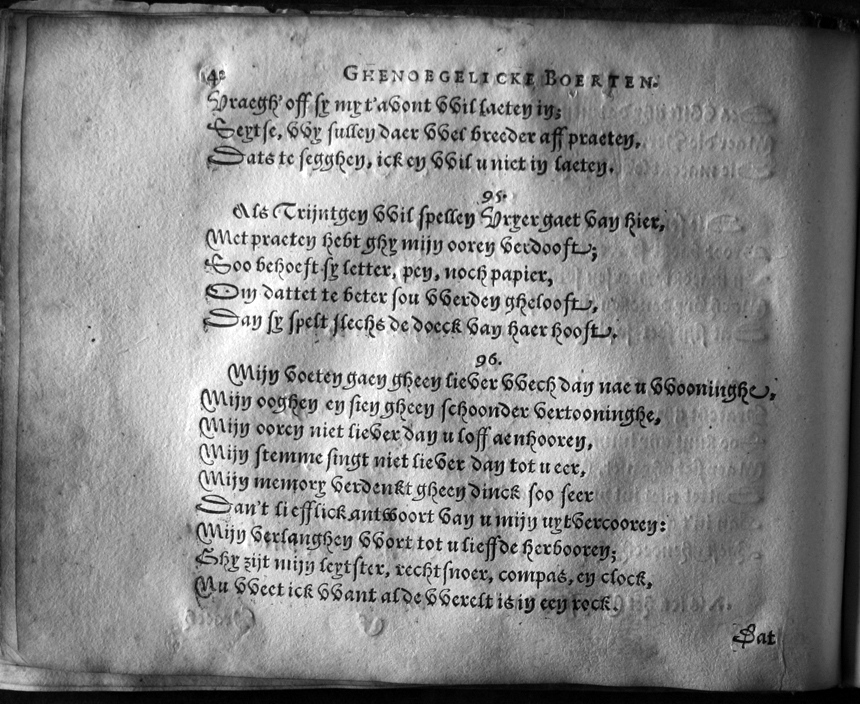 42 GHENOEGELICKE BOERTEN.
Vraegh' off sy my t'avont wil laeten in;
Seytse, wy sullen daer wel breeder aff praeten,
Dats te segghen, ick en wil u niet in laeten.
95.
Als Trijntgen wil spellen Vryer gaet van hier,
Met praeten hebt ghy mijn ooren verdooft;
Soo behoeft sy letter, pen, noch papier,
Om dattet te beter sou werden ghelooft,
Dan sy spelt slechs de doeck van haer hooft.
96.
Mijn voeten gaen gheen liever wech dan nae u wooninghe,
Mijn ooghen en sien gheen schoonder vertooninghe,
Mijn ooren niet liever dan u loff aenhooren,
Mijn stemme singt niet liever dan tot u eer,
Mijn memory verdenkt gheen dinck soo seer
Dan't liefflick antwoort van u mijn uytvercooren:
Mijn verlanghen wort tot u lieffde herbooren;
Ghy zijt mijn leytster, rechtsnoer, compas, en clock,
Nu weet ick want al de werelt is in een rock.
Dat